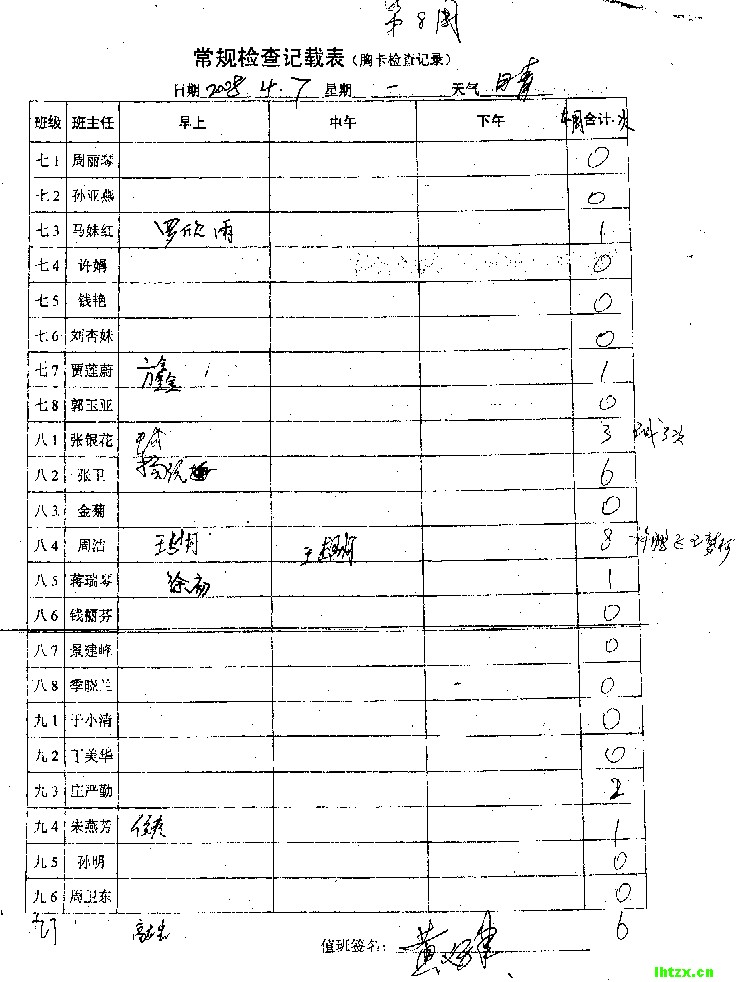 第8周
常规检查记载表(胸卡检查记录)
日期 2008.4.7 星期 一 天气 晴
班级 班主任 早上 中午 下午 本周合计.次
七1 周丽琴 0
七2 孙亚燕 0
七3 马妹红 罗欣雨 1
七4 许娟 0
七5 钱艳 0
七6 刘杏妹 0
七7 贾莲蔚 方鑫 1
七8 郭玉亚 0
八1 张银花 3
八2 张卫 6
八3 金菊 0
八4 周洁 8
八5 蒋瑞琴 1
八6 钱丽芬 0
八7 景建峰 0
八8 季晓兰 0
九1 于小清 0
九2 丁美华 0
九3 庄严勤 2
九4 朱燕芳 1
九5 孙明 0
九6 周卫东 0
6
值班签名:
lhtzx.cn